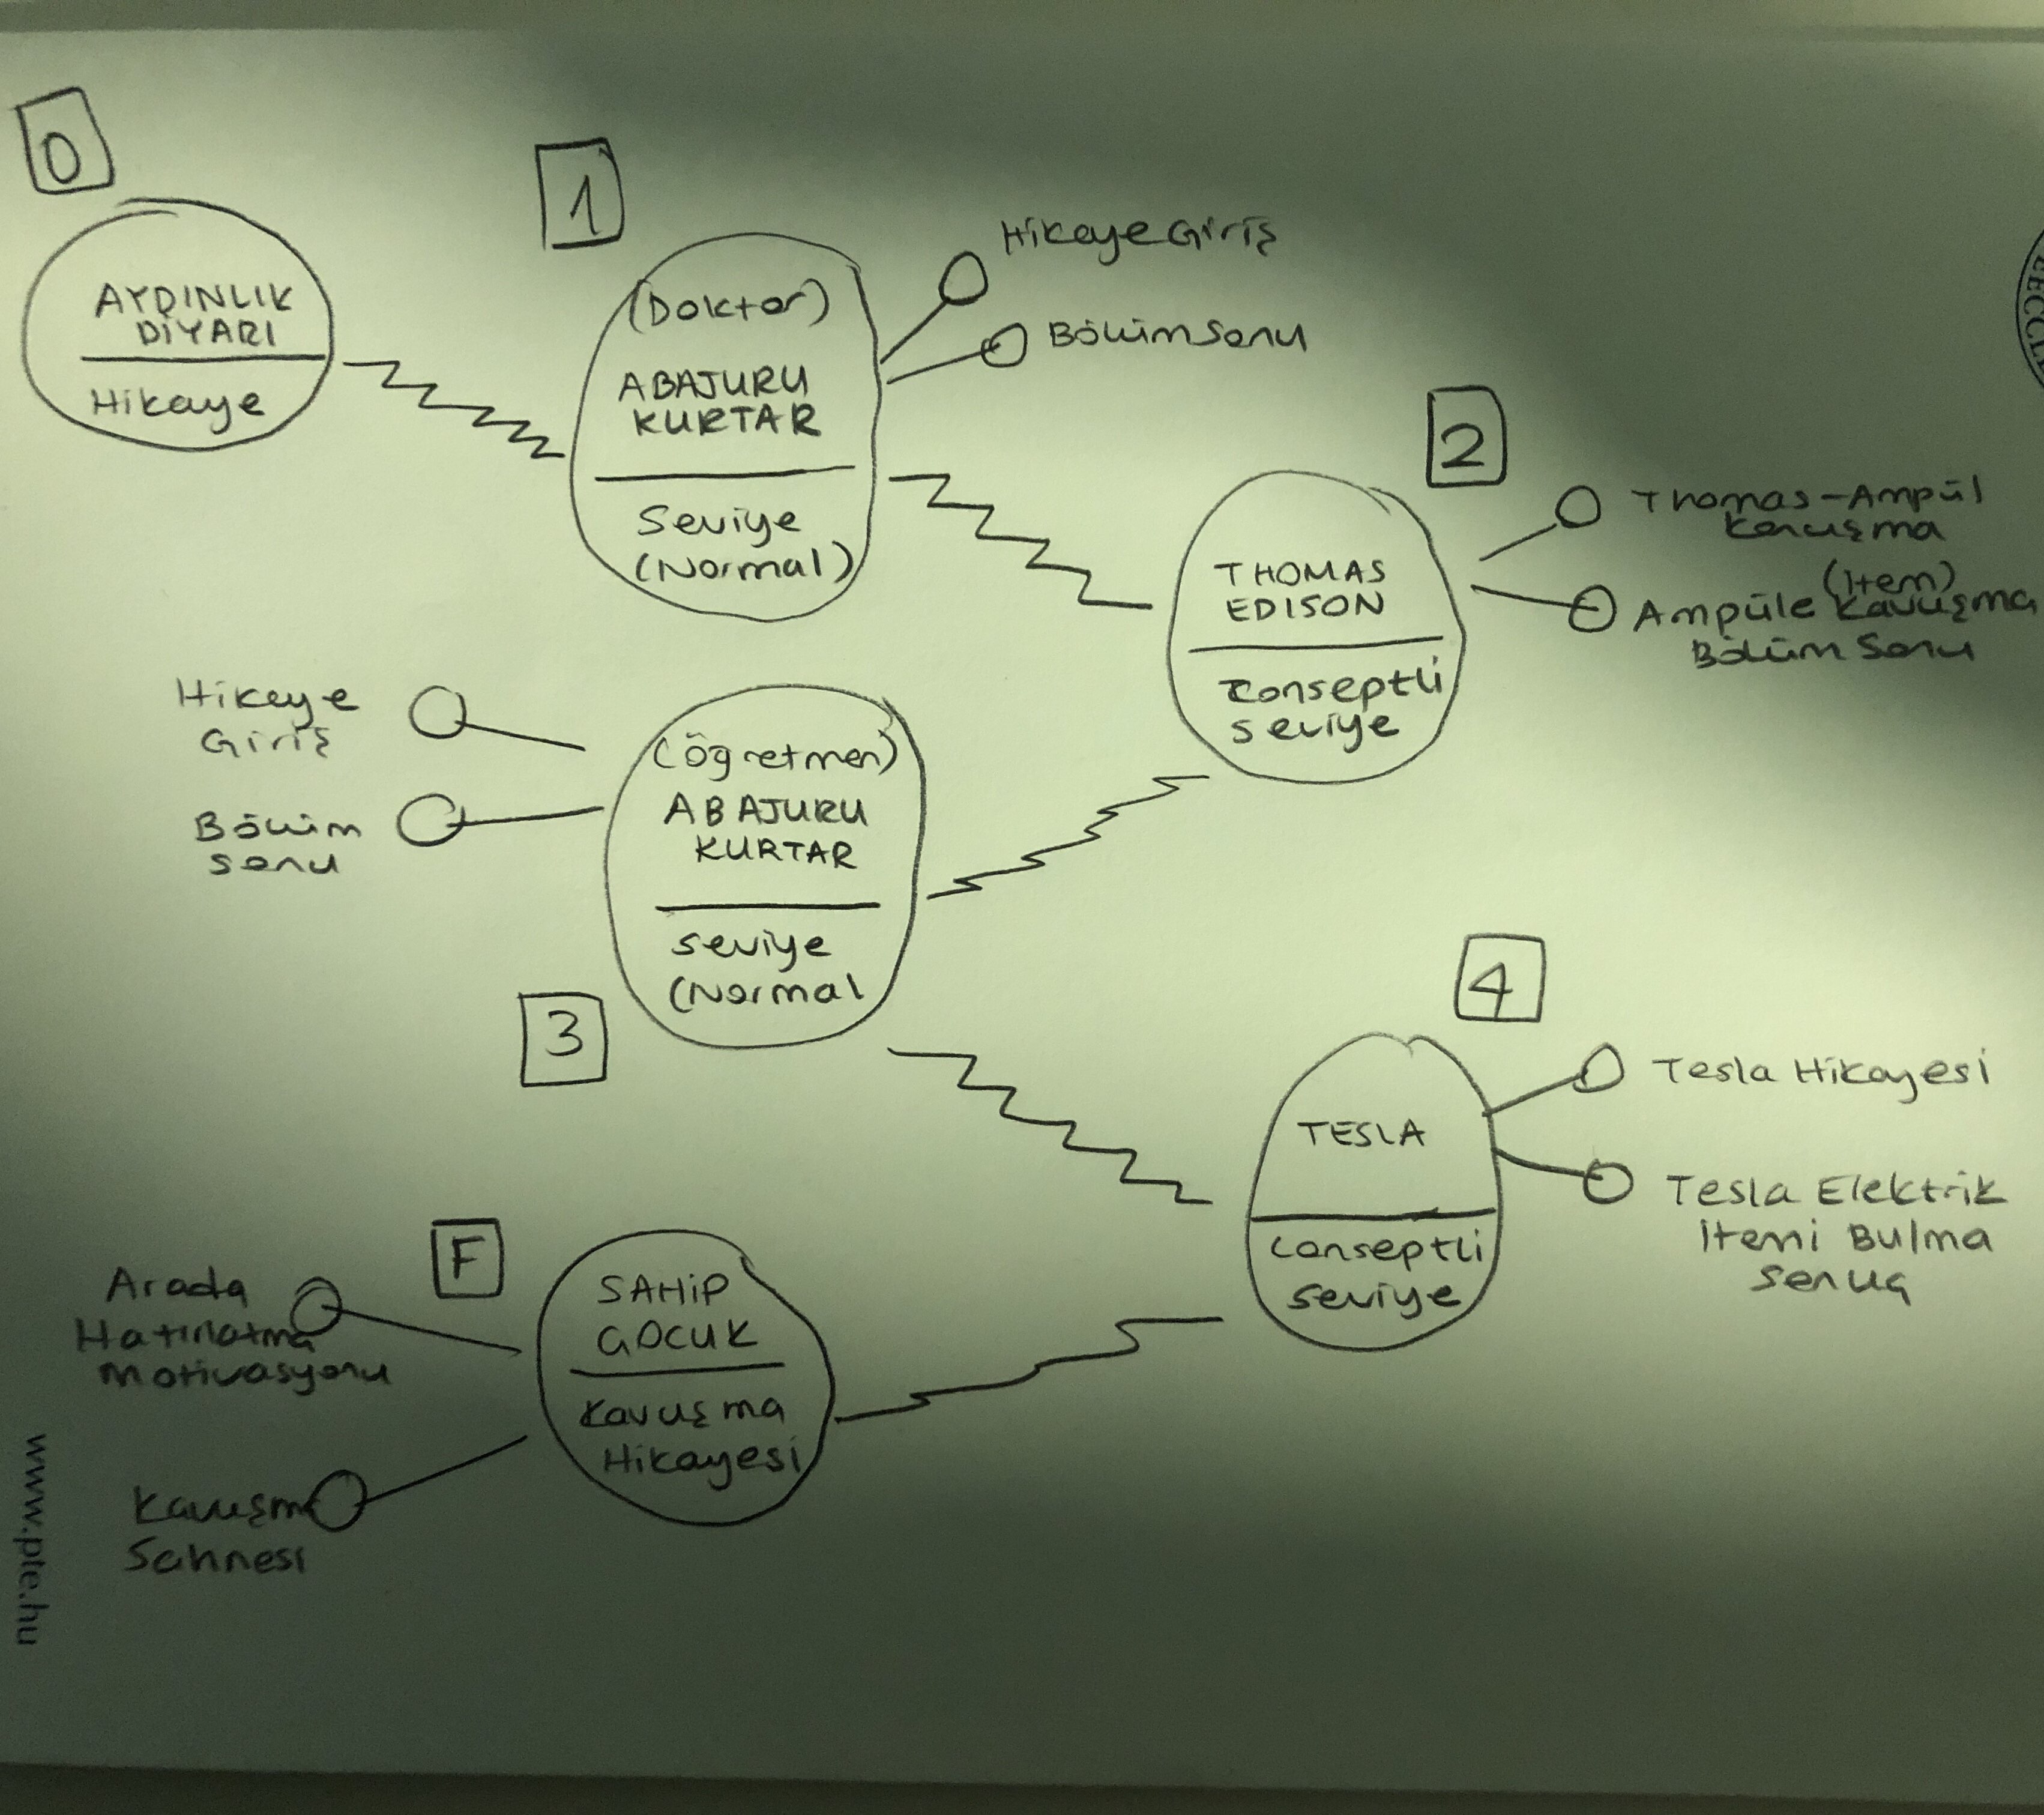 0
AYDINLIK
DİYARI
Hikaye
1
(Doktor)
ABAJURU
KURTAR
Seviye
(Normal)
Hikaye Giriş
Bölüm Sonu
2
THOMAS
EDISON
Conseptli
seviye
Thomas-Ampül
Konuşma
(Item)
Ampüle Kavuşma
Bölüm Sonu
3
(Öğretmen)
ABAJURU
KURTAR
Seviye
(Normal
Hikaye
Giriş
Bölüm
Sonu
4
TESLA
Conseptli
seviye
Tesla Hikayesi
Tesla Elektrik
İtemi Bulma
Sonuç
F
SAHİP
ÇOCUK
Kavuşma
Hikayesi
Arada
Hatırlatma
Motivasyonu
Kavuşma
Sahnesi
www.pte.hu